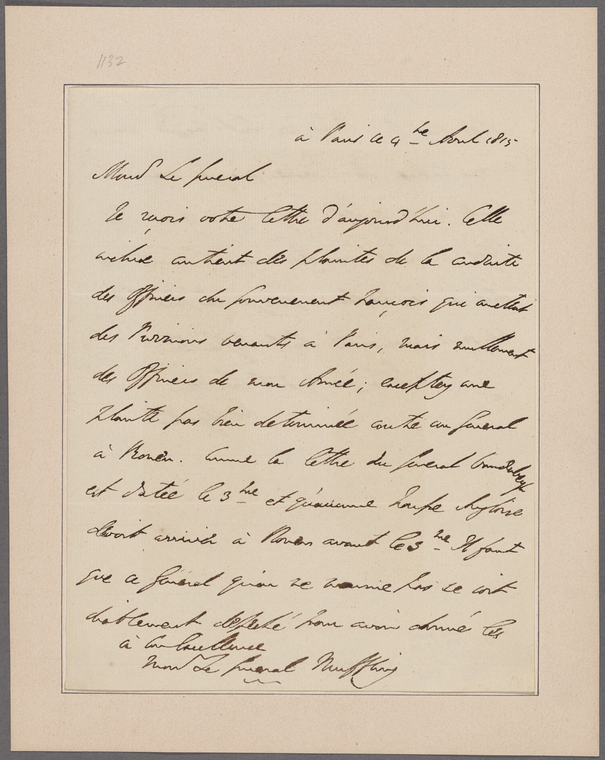 1132
à Paris ce 4me Aout 1815
Monsr Le General
Je reçois votre lettre d'aujourd'hui. Celle
incluse contient des plaintes de la conduite
des Officiers du Gouvernement François qui arrettent
des Provisions venants à Paris, mais nullement
des Officiers de mon Armée; exceptez une
plainte pas bien determinée contre un General
à Rouen. Comme la lettre du General
est datée le 3me et qu'aucune troupe Angloise
devoit arriver à Rouen avant le 3me Il faut
que ce General qu'on ne nomme pas se soit
diablement depeché pour avoir donné les
à Son Excellence
Monsr Le General Muffling